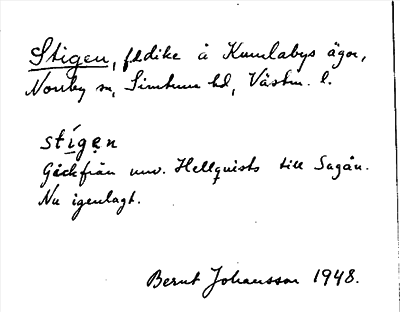 Stigen, fd dike å Kumlabys ägor,
Norrby sn, Simtuna hd, Västm. l.
stígẹn
Gick från nuv. Hellquists till Sagån.
Nu igenlagt.
Bernt Johansson 1948.